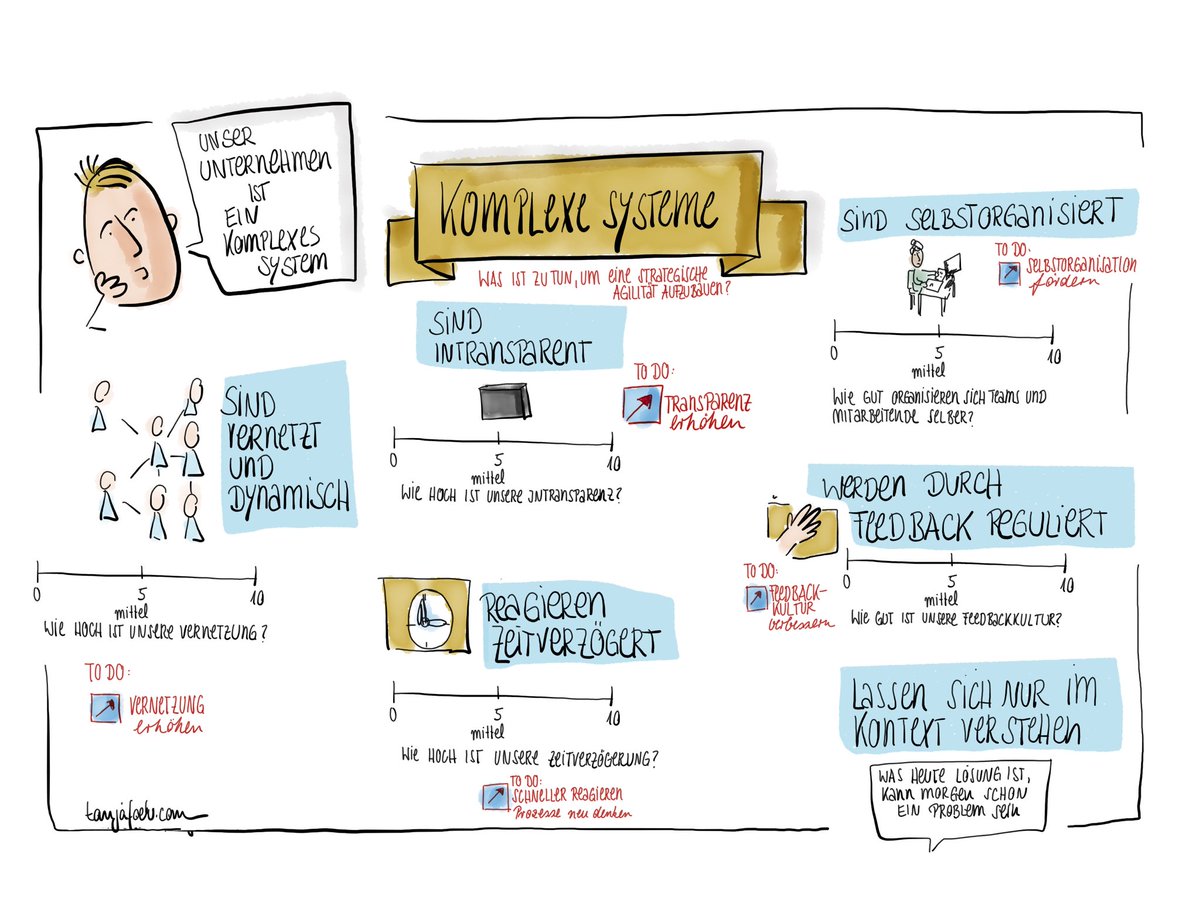 UNSER
UNTERNEHMEN
IST
EIN
KOMPLEXES
SYSTEM
KOMPLEXE SYSTEME
WAS IST ZU TUN, UM EINE STRATEGISCHE
AGILITÄT AUFZUBAUEN?
SIND
VERNETZT
UND
DYNAMISCH
0 5 10
mittel
WIE HOCH IST UNSERE VERNETZUNG?
TO DO:
VERNETZUNG
erhöhen
SIND
INTRANSPARENT
TO DO:
TRANSPARENZ
erhöhen
0 5 10
mittel
WIE HOCH IST UNSERE INTRANSPARENZ?
REAGIEREN
ZEITVERZÖGERT
0 5 10
mittel
WIE HOCH IST UNSERE ZEITVERZÖGERUNG?
TO DO:
SCHNELLER REAGIEREN
Prozesse neu denken
SIND SELBSTORGANISIERT
TO DO:
SELBSTORGANISATION
fördern
0 5 10
mittel
WIE GUT ORGANISIEREN SICH TEAMS UND
MITARBEITENDE SELBER?
WERDEN DURCH
FEEDBACK REGULIERT
TO DO:
FEEDBACK-
KULTUR
verbessern
0 5 10
mittel
WIE GUT IST UNSERE FEEDBACKKULTUR?
LASSEN SICH NUR IM
KONTEXT VERSTEHEN
WAS HEUTE LÖSUNG IST,
KANN MORGEN SCHON
EIN PROBLEM SEIN